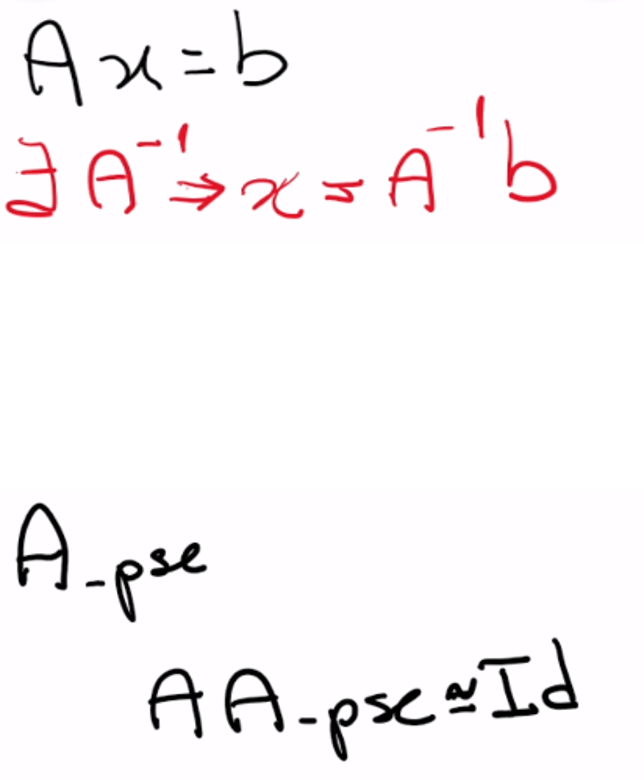 Ax = b
∃ A⁻¹ ⇒ x = A⁻¹b
A-pse
AA-pse ≃ Id